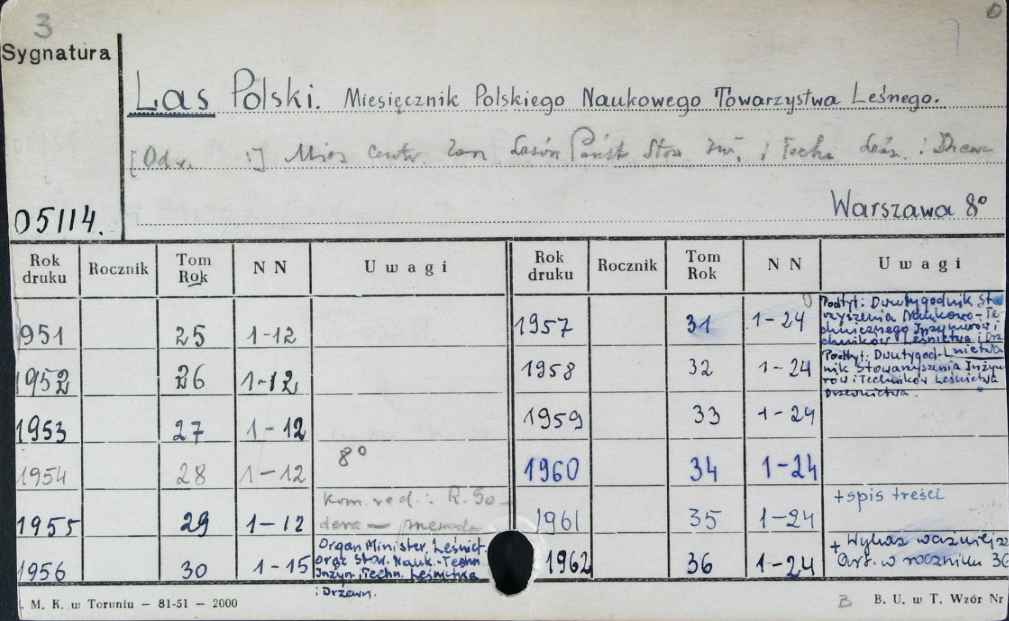 3
Sygnatura
Las Polski. Miesięcznik Polskiego Naukowego Towarzystwa Leśnego.
[Od r. :] Mies Centr. Zarz Lasów Państ Stow Inż. i Techn Leśn. i Drzewn
05114.
Warszawa 8°
Rok druku Rocznik Tom Rok N N Uwagi Rok druku Rocznik Tom Rok N N Uwagi
951 25 1-12 1957 31 1-24 Podtyt: Dwutygodnik Sto
rzyszenia Naukowo-Te
chnicznego Inżynierów i
chników Leśnictwa i Drz
1952 26 1-12 1958 32 1-24 Podtyt: Dwutygod-
nik Stowarzyszenia Inżyn
rów i Techników Leśnictwa
Drzewnictwa.
1953 27 1-12 1959 33 1-24
1954 28 1-12 8° 1960 34 1-24
1955 29 1-12 Kom. red.: R. Go-
dera — 1961 35 1-24 + spis treści
1956 30 1-15 Organ Minister. Leśnict.
oraz Stow. Nauk.-Techn
Inżyn. Techn. Leśnictwa
i Drzewn.
1962 36 1-24 + Wykaz ważniejsz
art. w roczniku 36
. M. K. w Toruniu — 81-51 — 2000
B B. U. w T. Wzór Nr